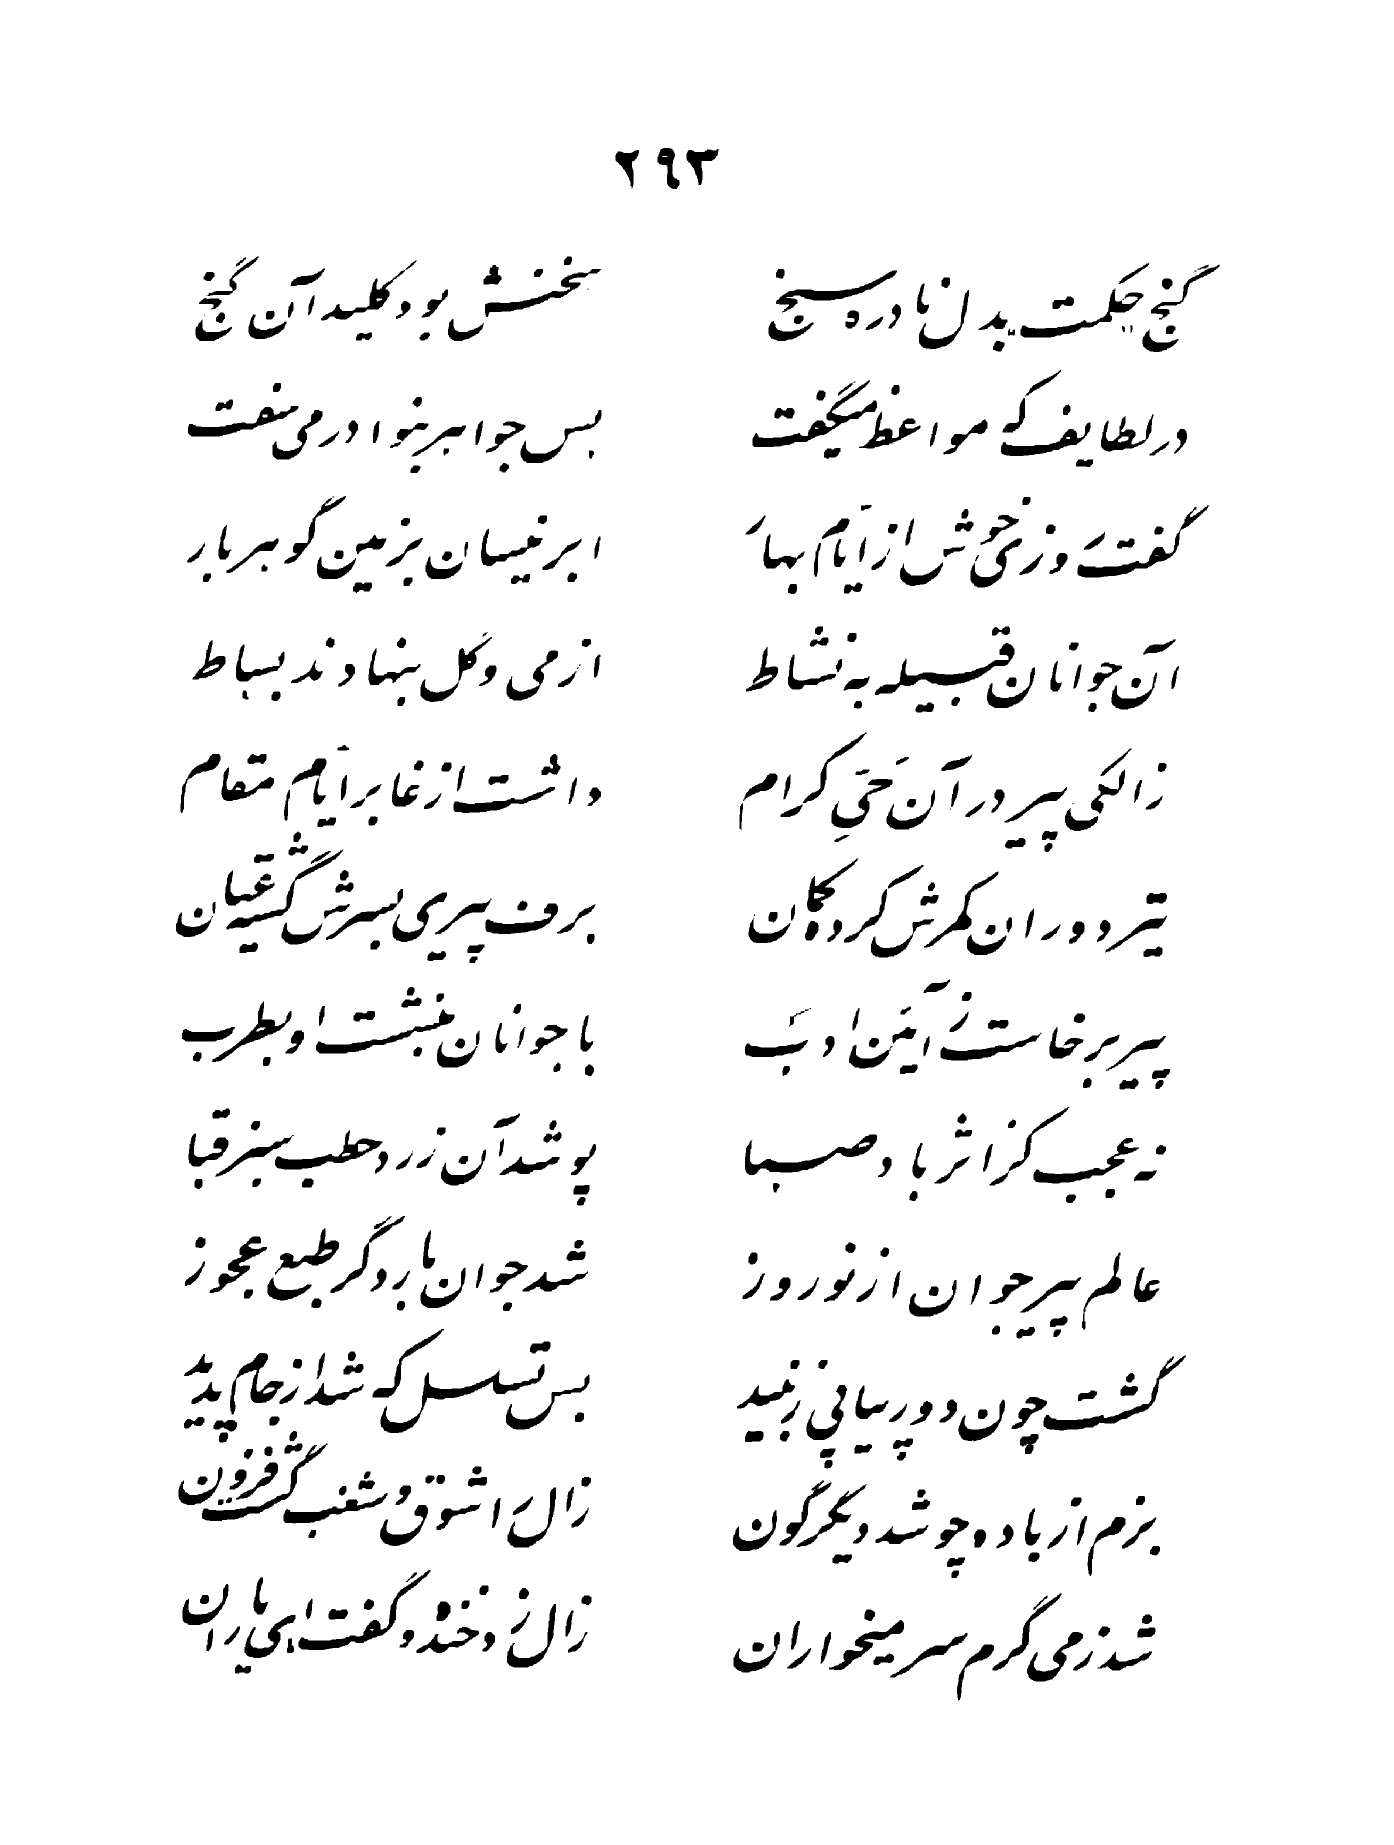 ٢٩٣
گنج حکمت بدل نادره سنج سخنش بود کلید آن گنج
در لطایف که مواعظ میگفت بس جواهر بنوادر می سفت
گفت روزی خوش از ایّام بهار ابر نیسان بزمین گوهر بار
آن جوانان قبیله به نشاط از می و گل بنهادند بساط
زالکی پیر در آن حَیِ کرام داشت از غابر ایّام مقام
تیر دوران کمرش کرده کمان برف پیری بسرش گشته عیان
پیر برخاست ز آیین ادب با جوانان بنشست او بطرب
نه عجب کز اثر باد صبا پوشد آن زرد حطب سبز قبا
عالم پیر جوان از نوروز شد جوان بار دگر طبع عجوز
گشت چون دور پیاپی ز نبید بس تسلسل که شد از جام پدید
بزم از باده چو شد دیگرگون زال را شوق و شغب گشت فزون
شد ز می گرم سر میخواران زال زد خنده و گفت ای یاران